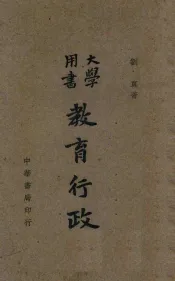 劉真著
大學用書
教育行政
中華書局印行